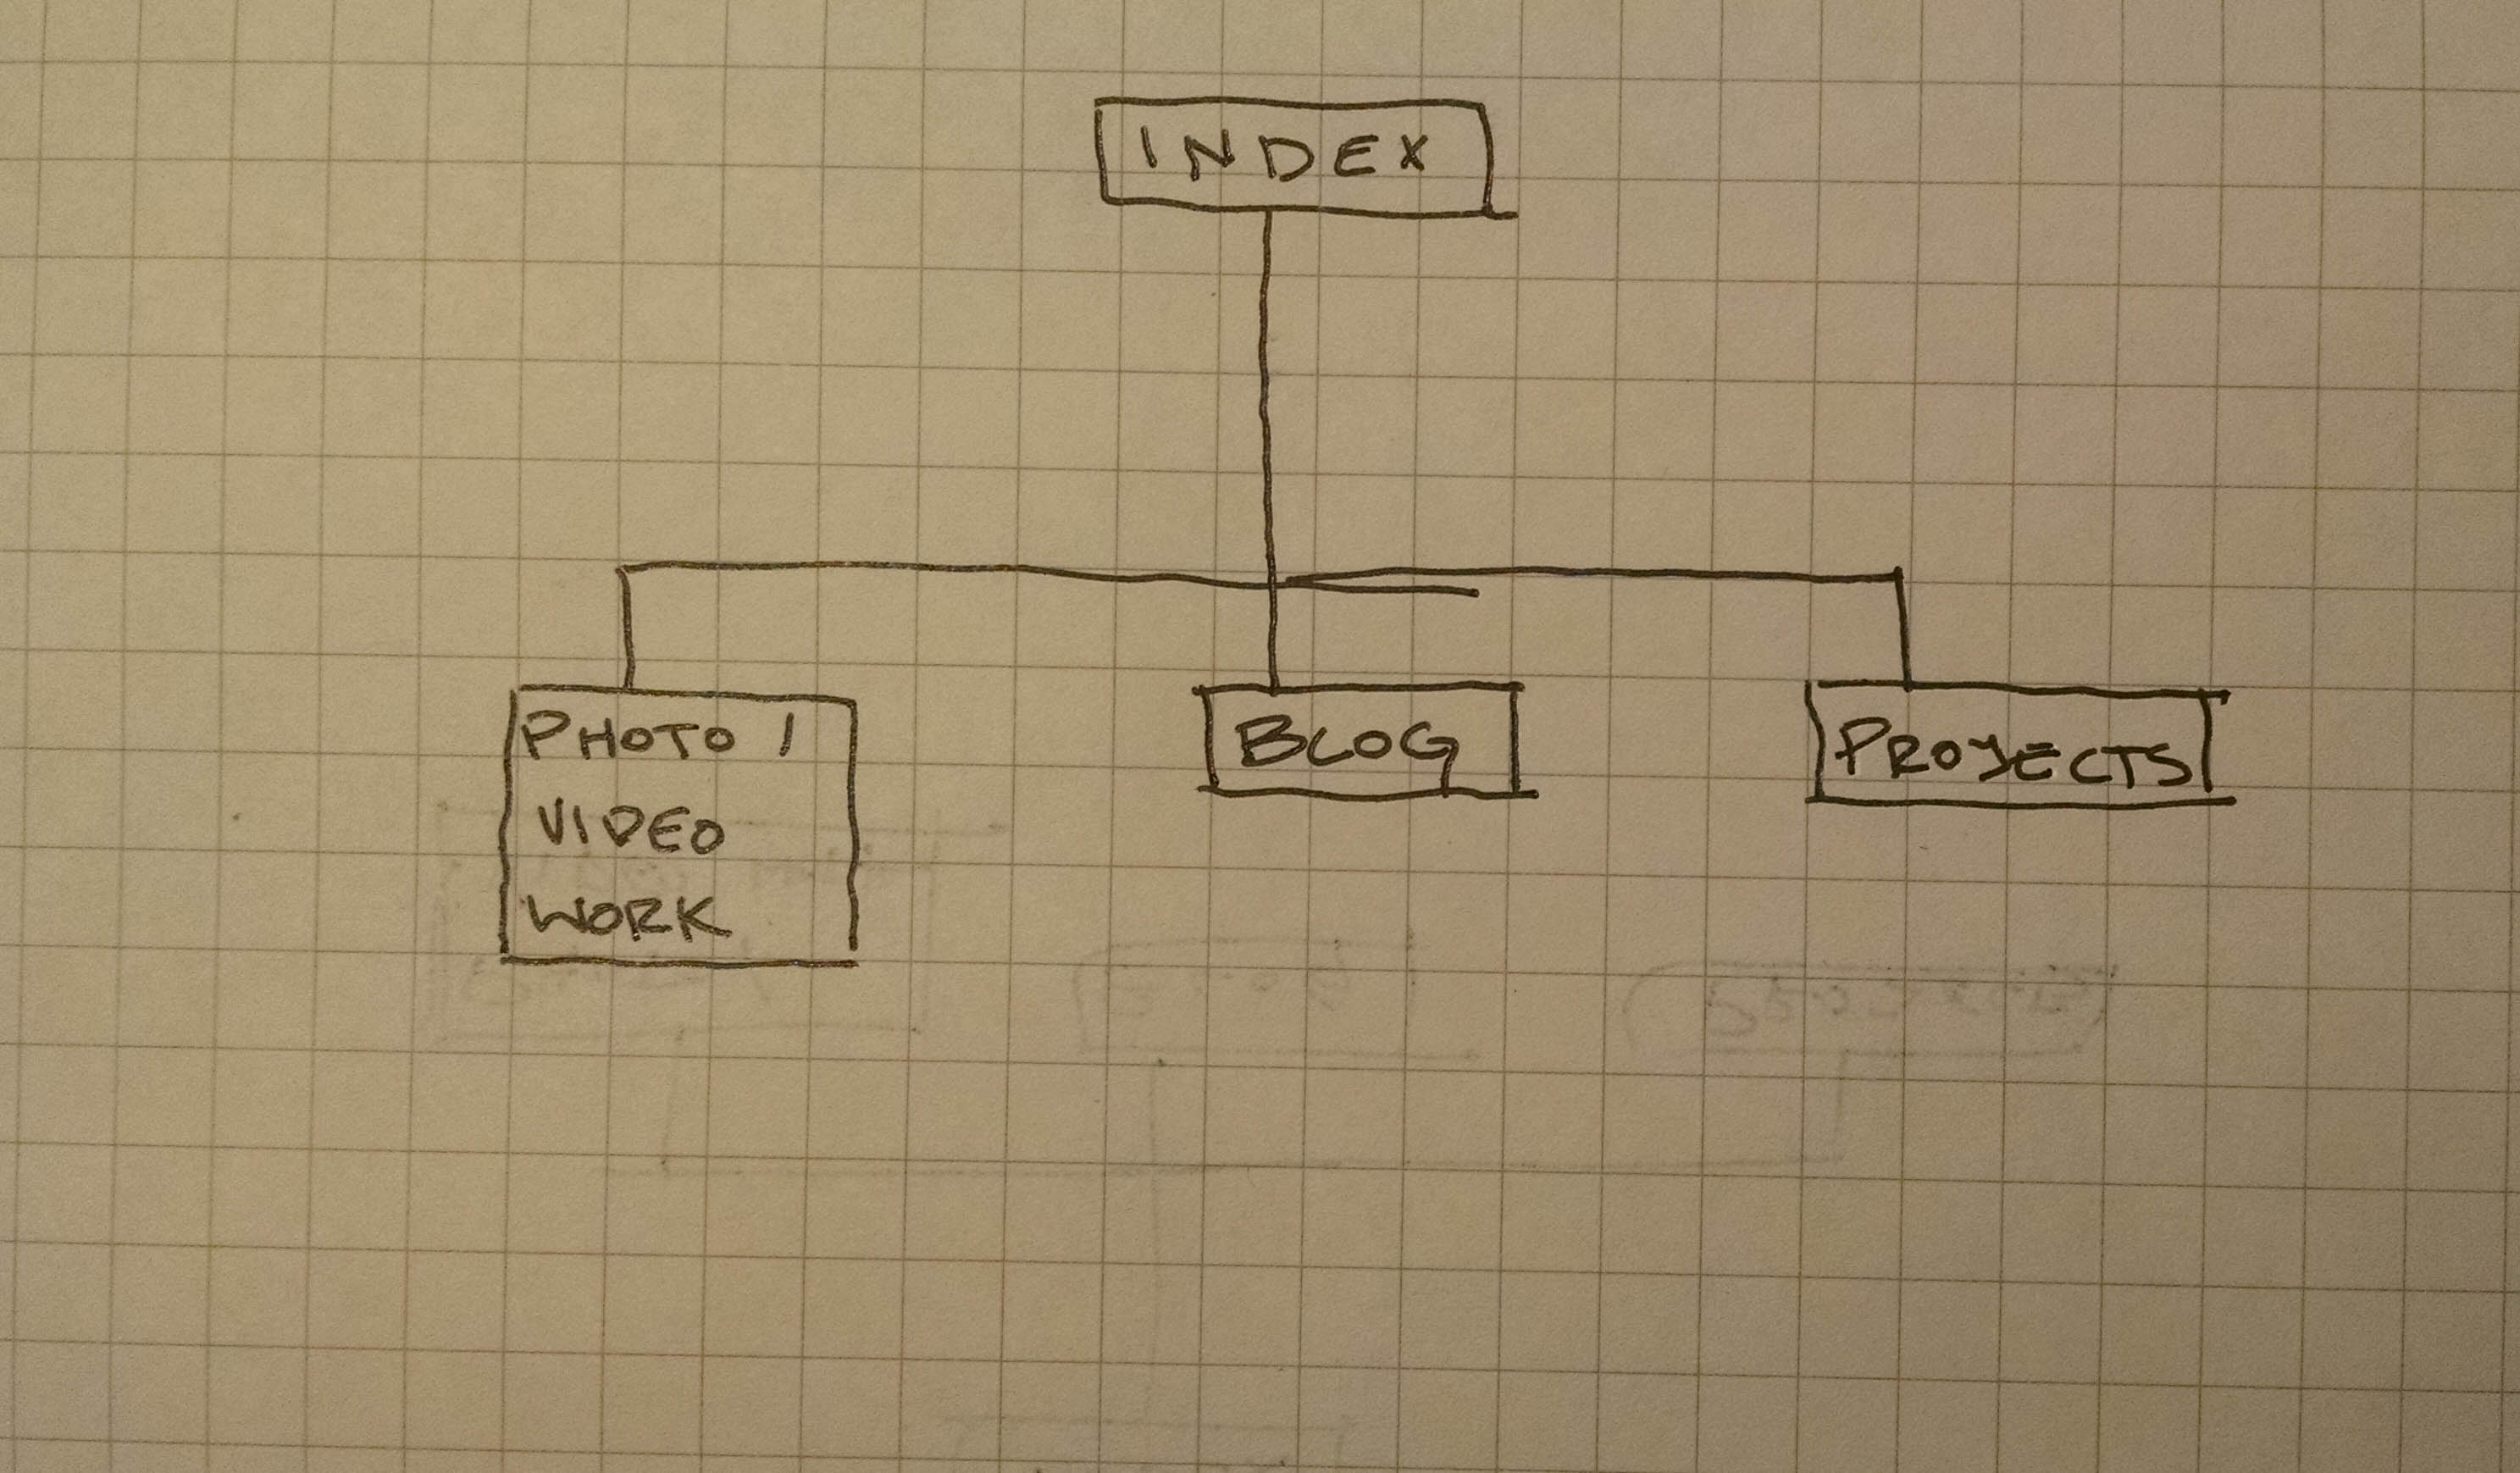 INDEX
PHOTO /
VIDEO
WORK
BLOG
PROYECTS